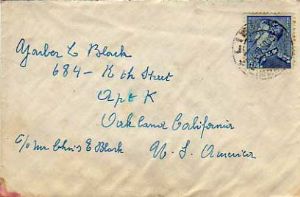 Yarber L Black
684 - K th Street
Apt K
Oakland California
c/o Mr Chris E Black U. S. America